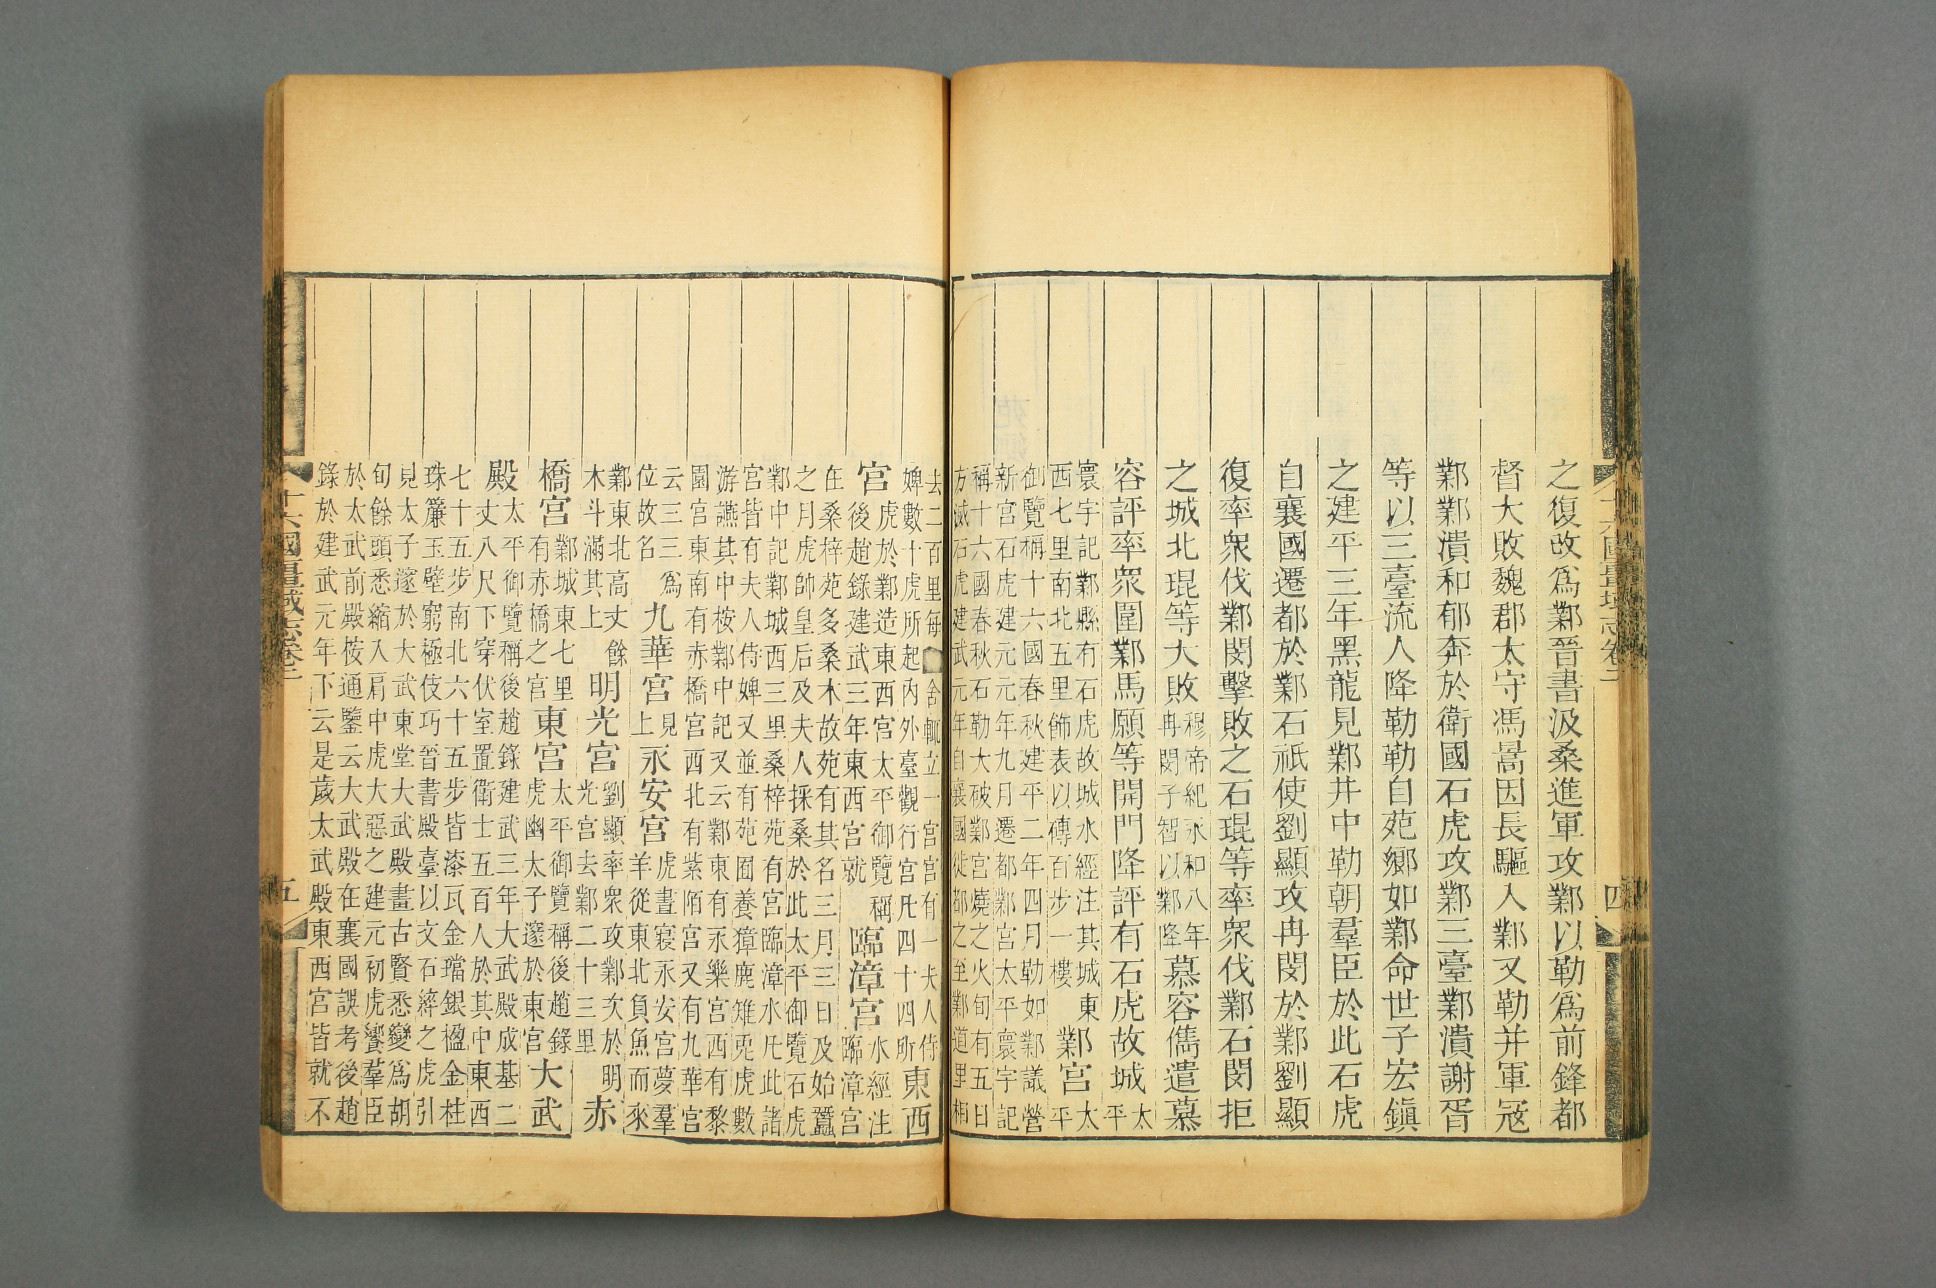 十六國疆域志卷二 四
之復改爲鄴晉書汲桑進軍攻鄴以勒爲前鋒都
督大敗魏郡太守馮嵩因長驅入鄴又勒并軍寇
鄴鄴潰和郁奔於衛國石虎攻鄴三臺鄴潰謝胥
等以三臺流人降勒勒自苑鄉如鄴命世子宏鎮
之建平三年黑龍見鄴井中勒朝羣臣於此石虎
自襄國遷都於鄴石祇使劉顯攻冉閔於鄴劉顯
復率衆伐鄴閔擊敗之石琨等率衆伐鄴石閔拒
之城北琨等大敗穆帝紀永和八年冉閔子智以鄴降慕容儁遣慕
容評率衆圍鄴馬願等開門降評有石虎故城太平
寰宇記鄴縣有石虎故城水經注其城東西七里南北五里飾表以磚百步一樓鄴宮太平
御覽稱十六國春秋建平二年四月勒如鄴議營
新宮石虎建元元年九月遷都鄴宮太平寰宇記
稱十六國春秋石勒大破鄴宮燒之火旬有五日
方滅石虎建武元年自襄國徙都之至鄴道里相
去二百里每舍輒立一宮宮有一夫人侍婢數十虎所起內外臺觀行宮凡四十四所東西
宮虎於鄴造東西宮太平御覽稱後趙錄建武三年東西宮就臨漳宮水經注臨漳宮
在桑梓苑多桑木故苑有其名三月三日及始蠶
之月虎帥皇后及夫人採桑於此太平御覽石虎
鄴中記鄴城西三里桑梓苑有宮臨漳水凡此諸
宮皆有夫人侍婢又並有苑囿養獐鹿雉兎虎數
游讌其中按鄴中記又云鄴東有永樂宮西有黎
園宮東南有赤橋宮西北有紫陌宮又有九華宮
云三三爲位故名九華宮見上永安宮虎晝寢永安宮夢羣羊從東北負魚而來
鄴東北高丈餘木斗滿其上明光宮劉顯率衆攻鄴次於明光宮去鄴二十三里赤
橋宮鄴城東七里有赤橋之宮東宮太平御覽稱後趙錄虎幽太子邃於東宮大武
殿太平御覽稱後趙錄建武三年大武殿成基二丈八尺下穿伏室置衛士五百人於其中東西
七十五步南北六十五步皆漆瓦金璫銀楹金柱
珠簾玉壁窮極伎巧晉書殿臺以文石綷之虎引
見太子邃於大武東堂大武殿畫古賢悉變爲胡
旬餘頭悉縮入肩中虎大惡之建元初虎饗羣臣
於太武前殿按通鑒云大武殿在襄國誤考後趙
錄於建武元年下云是歲太武殿東西宮皆就不
十六國疆域志卷二 五